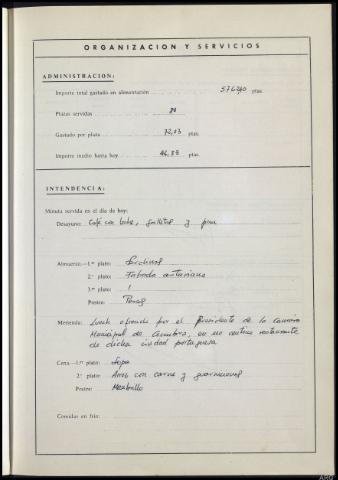 ORGANIZACION Y SERVICIOS
ADMINISTRACION:
Importe total gastado en alimentación ptas.
Platos servidos
Gastado por plato 72,03 ptas.
Importe medio hasta hoy ptas.
INTENDENCIA:
Minuta servida en el día de hoy:
Desayuno: Café con leche, galletas y pan
Almuerzo.—1.er plato: Sardinas
2.º plato: Fabada asturiana
3.er plato: /
Postre: Peras
Merienda: Lunch ofrecido por el Presidente de la Camara
Municipal de Coimbra, en un centrico restaurante
de dicha ciudad portuguesa
Cena.—1.er plato: Sopa
2.º plato: Arroz con carne y guarniciones
Postre: Membrillo
Comidas en frío: